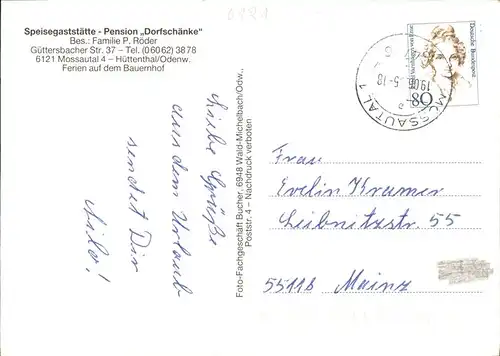 Speisegaststätte - Pension „Dorfschänke“
Bes.: Familie P. Röder
Güttersbacher Str. 37 – Tel. (06062) 3878
6121 Mossautal 4 – Hüttenthal/Odenw.
Ferien auf dem Bauernhof
Liebe Grüße
aus dem Urlaub
sendet Dir
Foto-Fachgeschäft Bucher, 6948 Wald-Michelbach/Odw.,
Poststr. 4 – Nachdruck verboten
Deutsche Bundespost
80
MOSSAUTAL 1
Frau
Evelin Kramer
Leibnitzstr. 55
55118 Mainz